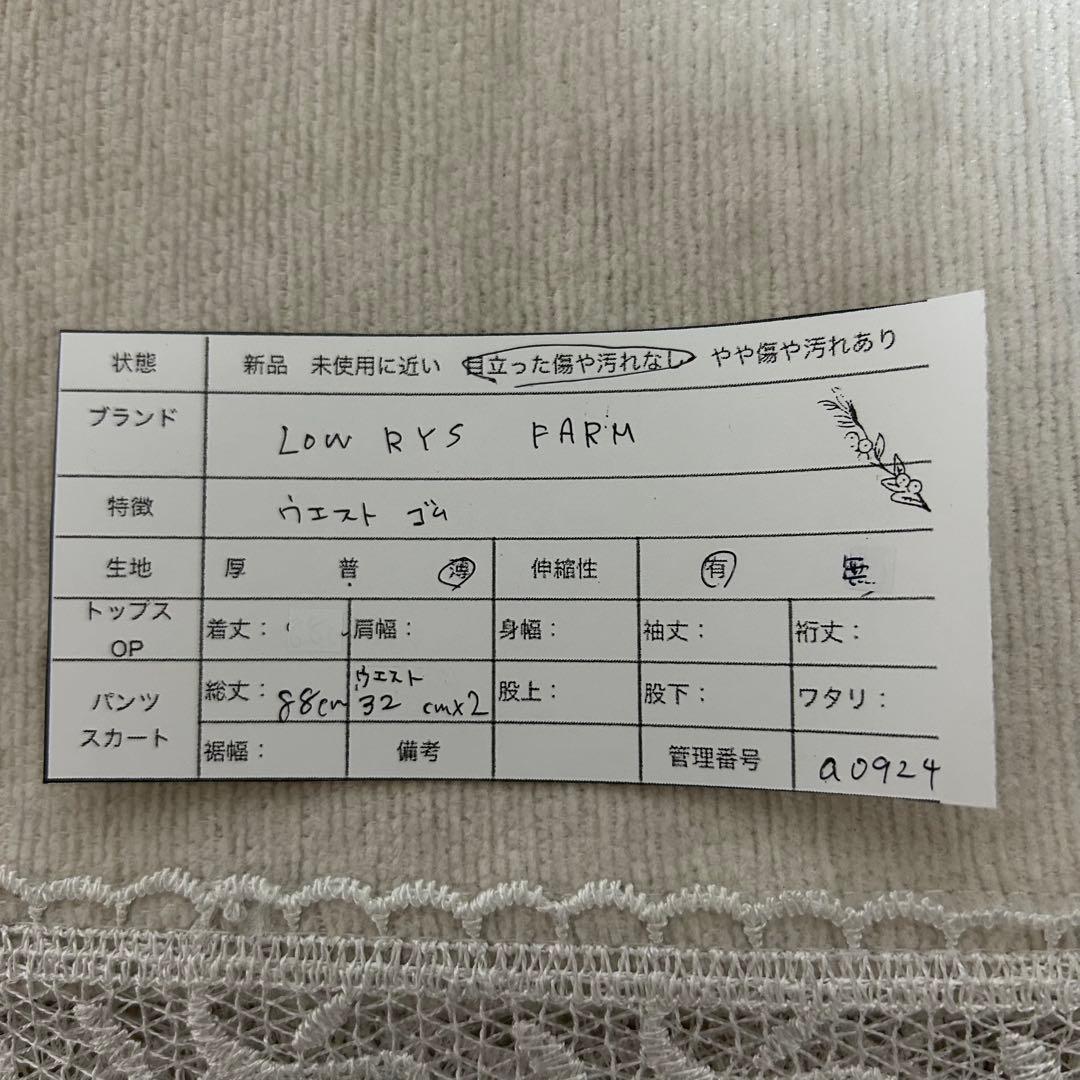 状態 新品 未使用に近い 目立った傷や汚れなし やや傷や汚れあり
ブランド LOW RYS FARM
特徴 ウエスト ゴム
生地 厚 普 薄 伸縮性 有 無
トップス OP 着丈： 肩幅： 身幅： 袖丈： 裄丈：
パンツ スカート 総丈：88cm ウエスト 32 cm×2 股上： 股下： ワタリ：
裾幅： 備考 管理番号 a0924